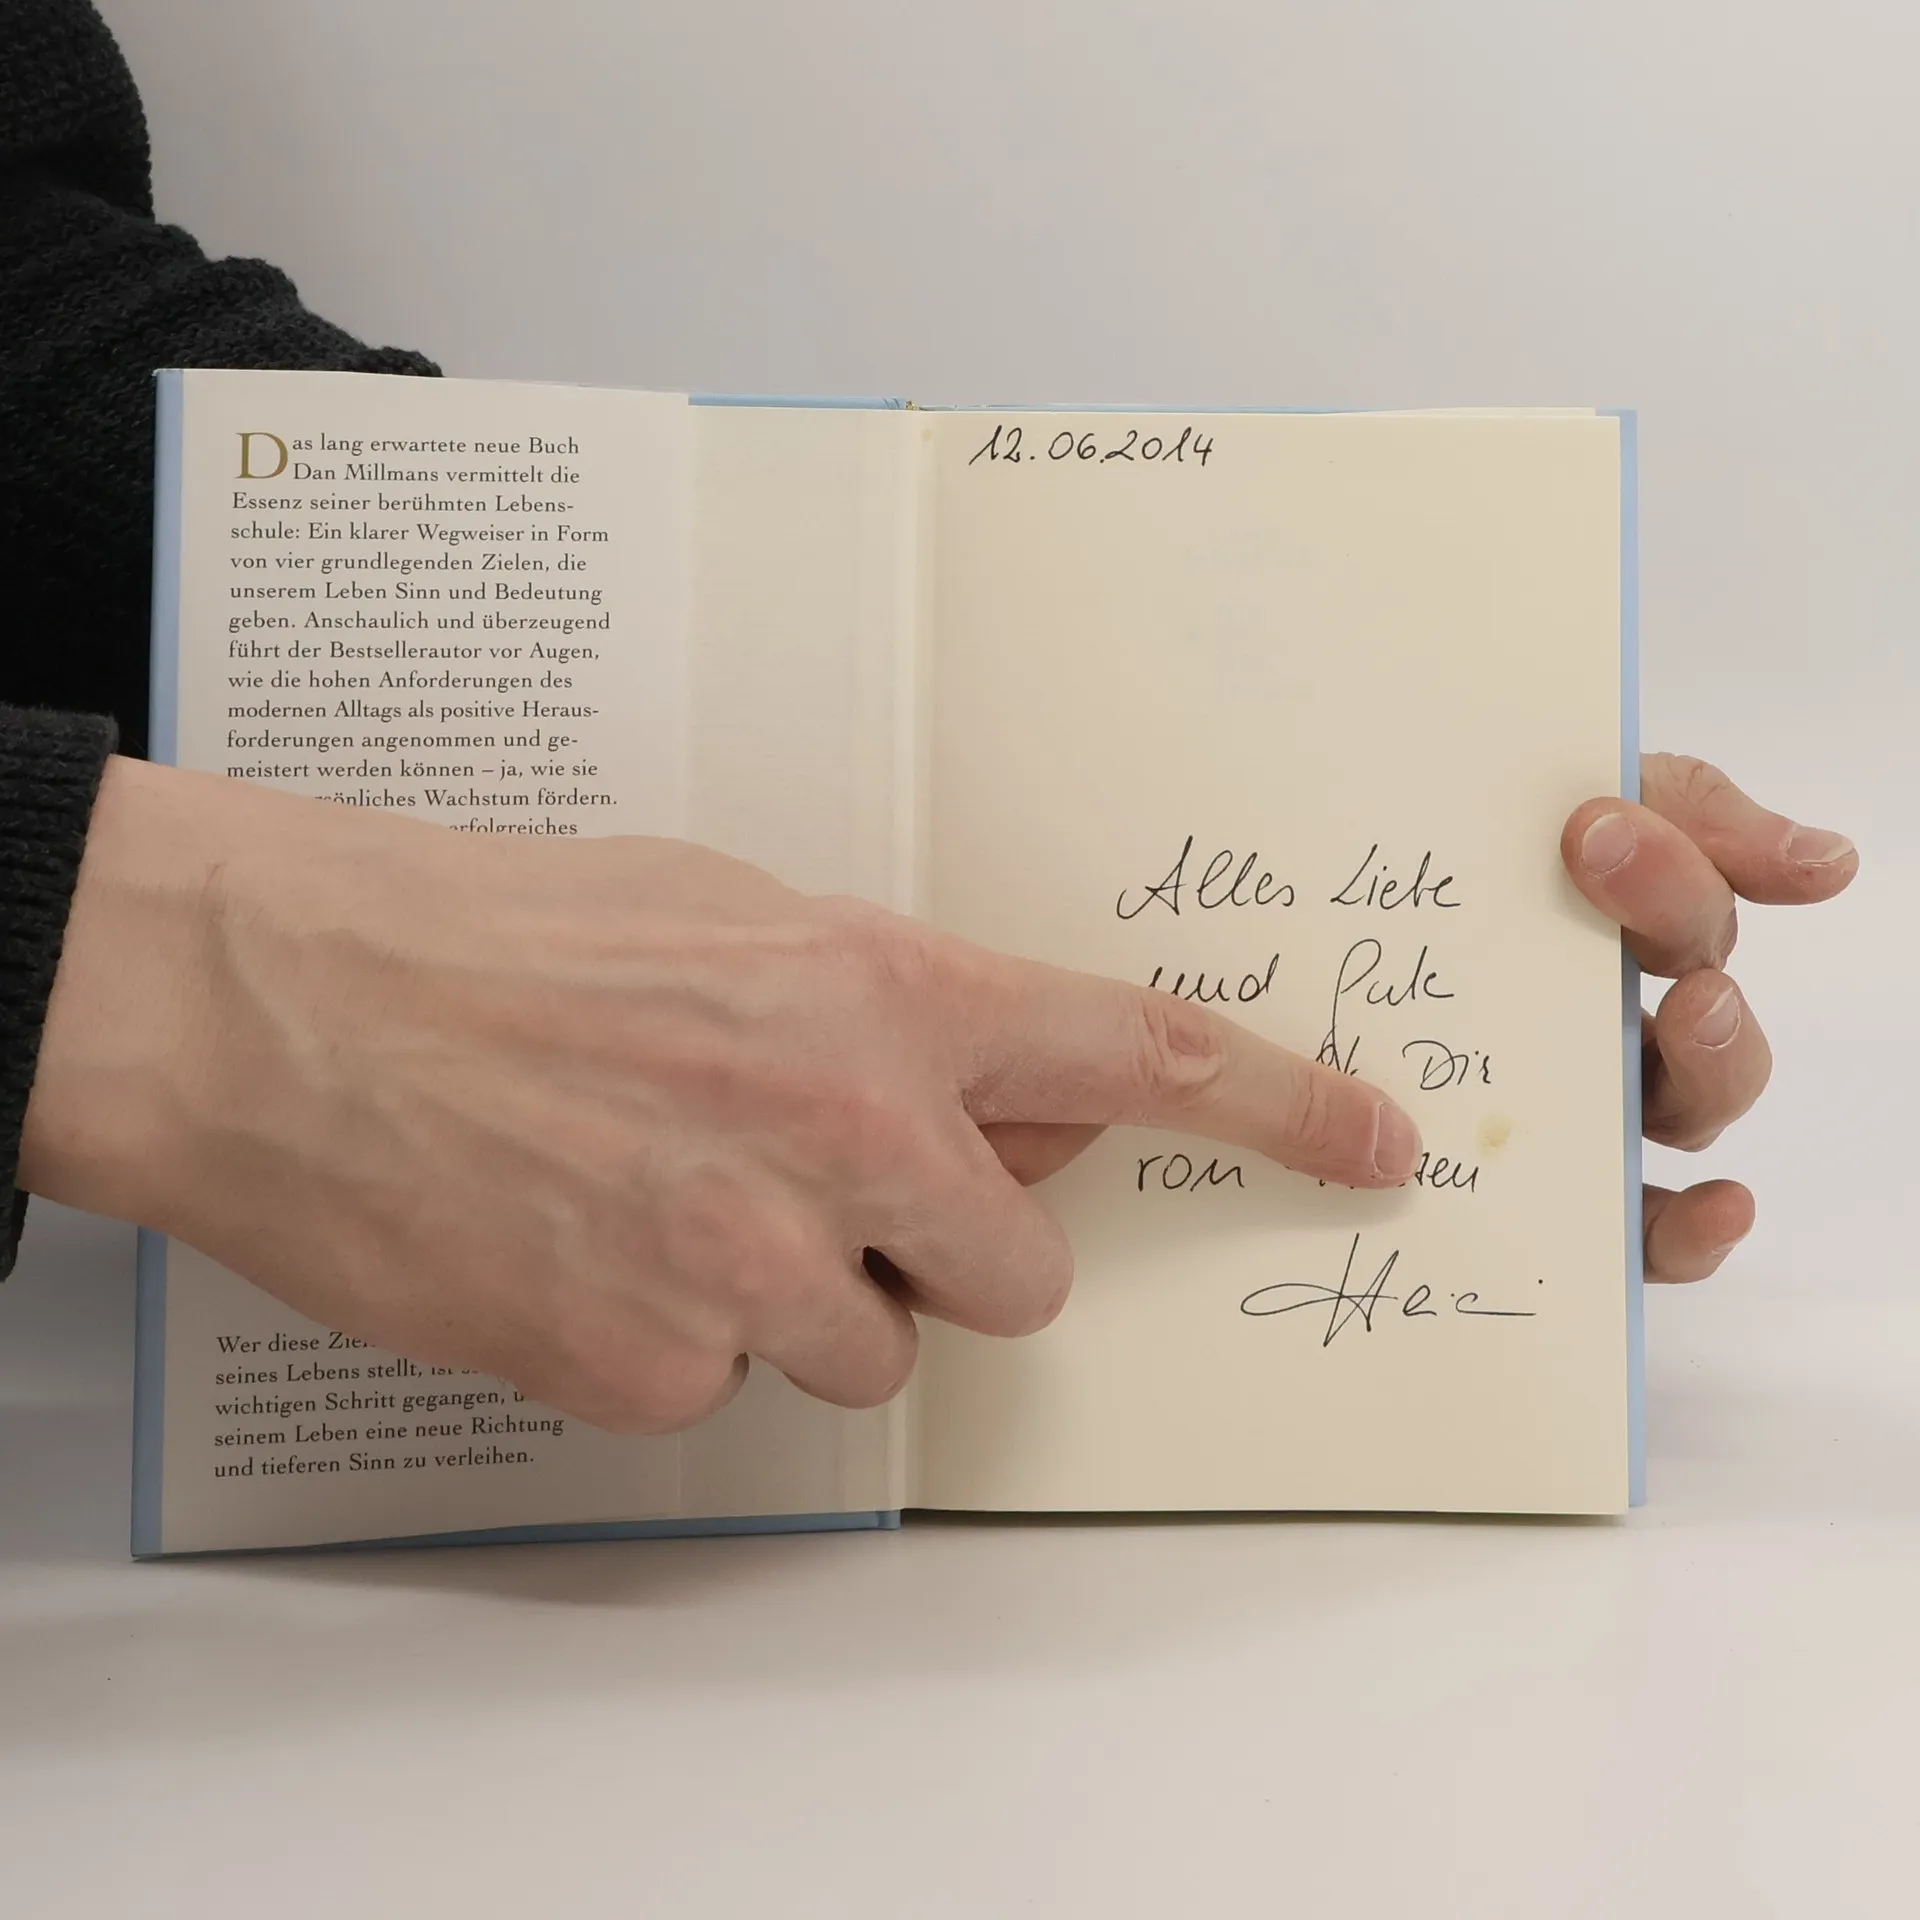 Das lang erwartete neue Buch
Dan Millmans vermittelt die
Essenz seiner berühmten Lebens-
schule: Ein klarer Wegweiser in Form
von vier grundlegenden Zielen, die
unserem Leben Sinn und Bedeutung
geben. Anschaulich und überzeugend
führt der Bestsellerautor vor Augen,
wie die hohen Anforderungen des
modernen Alltags als positive Heraus-
forderungen angenommen und ge-
meistert werden können – ja, wie sie
Wachstum fördern.
erfolgreiches
Wer diese
seines Lebens stellt,
wichtigen Schritt gegangen,
seinem Leben eine neue Richtung
und tieferen Sinn zu verleihen.
12.06.2014
Alles Liebe
und
Dir
von